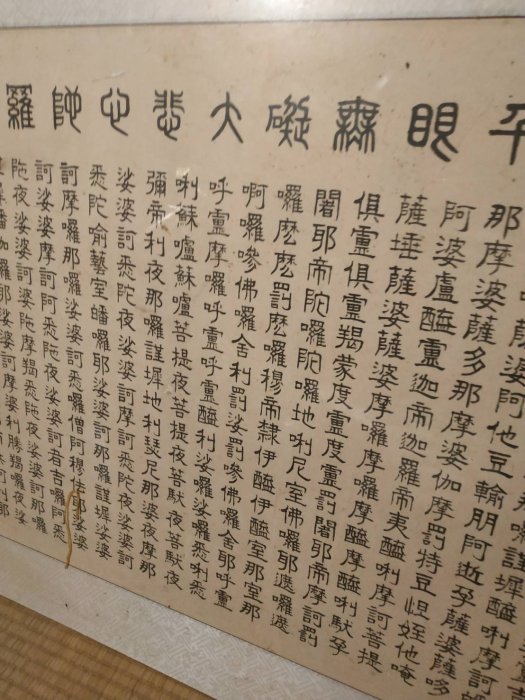 眼無礙大悲心陀羅
囉謹墀醯唎摩訶
薩婆阿他豆輸朋阿逝孕薩婆薩哆
那摩婆薩多那摩婆伽摩罰特豆怛姪他唵
阿婆盧醯盧迦帝迦羅帝夷醯唎摩訶菩提
薩埵薩婆薩婆摩囉摩囉摩醯摩醯唎馱孕
俱盧俱盧羯蒙度盧度盧罰闍耶帝摩訶罰
闍耶帝陀囉陀囉地唎尼室佛囉耶遮囉遮
囉麼麼罰麼囉穆帝隸伊醯伊醯室那室那
阿囉嘇佛囉舍利罰娑罰嘇佛囉舍耶呼盧
呼盧摩囉呼盧呼盧醯利娑囉娑囉悉唎悉
唎蘇嚧蘇嚧菩提夜菩提夜菩馱夜菩馱夜
彌帝利夜那囉謹墀地利瑟尼那婆夜摩那
娑婆訶悉陀夜娑婆訶摩訶悉陀夜娑婆訶
悉陀喻藝室皤囉耶娑婆訶那囉謹墀娑婆
訶摩囉那囉娑婆訶悉囉僧阿穆佉耶娑婆
訶娑婆摩訶阿悉陀夜娑婆訶者吉囉阿悉
陀夜娑婆訶陀摩羯悉陀夜娑婆訶那囉
墀皤伽囉耶娑婆訶摩婆利勝羯囉夜娑